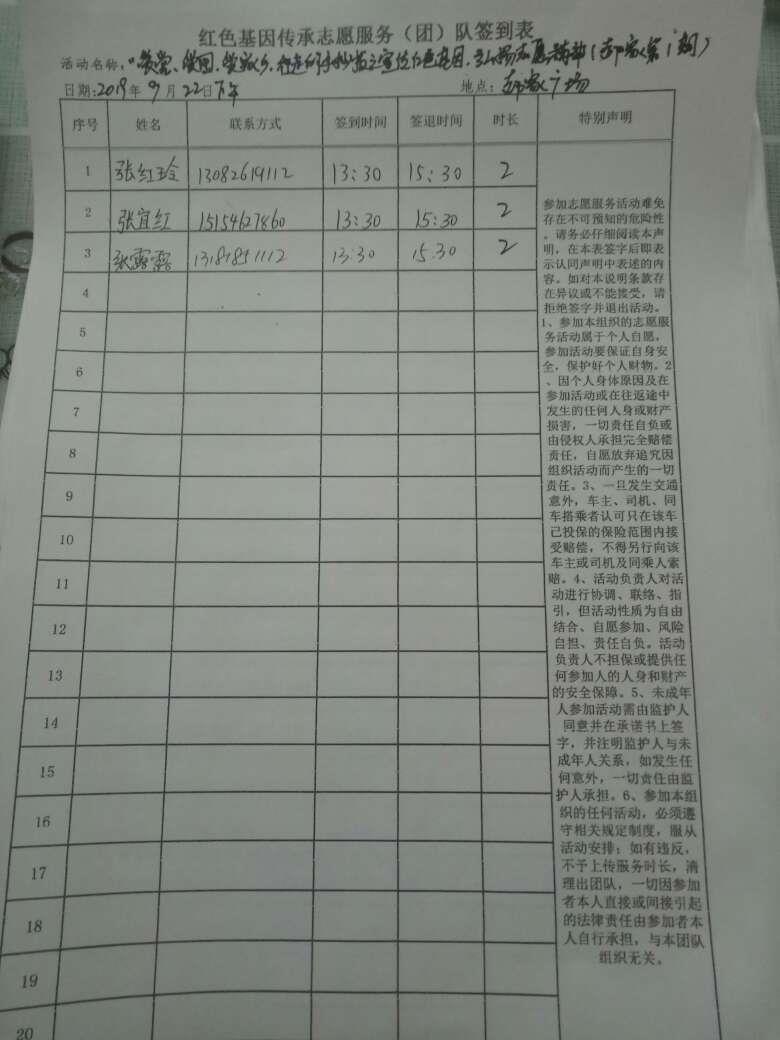 红色基因传承志愿服务（团）队签到表
活动名称：爱党、爱国、爱家乡，行走的
日期：2019年9月22日下午 地点：广场
序号 姓名 联系方式 签到时间 签退时间 时长 特别声明
1 张红玲 13082619112 13:30 15:30 2
2 张宜红 15154627860 13:30 15:30 2
3 张露露 13:30 15:30 2
4
5
6
7
8
9
10
11
12
13
14
15
16
17
18
19
20
参加志愿服务活动难免
存在不可预知的危险性
。请务必仔细阅读本声
明，在本表签字后即表
示认同声明中表述的内
容。如对本说明条款存
在异议或不能接受，请
拒绝签字并退出活动。
1、参加本组织的志愿服
务活动属于个人自愿，
参加活动要保证自身安
全，保护好个人财物。2
、因个人身体原因及在
参加活动或在往返途中
发生的任何人身或财产
损害，一切责任自负或
由侵权人承担完全赔偿
责任，自愿放弃追究因
组织活动而产生的一切
责任。3、一旦发生交通
意外，车主、司机、同
车搭乘者认可只在该车
已投保的保险范围内接
受赔偿，不得另行向该
车主或司机及同乘人索
赔。4、活动负责人对活
动进行协调、联络、指
引，但活动性质为自由
结合、自愿参加、风险
自担、责任自负。活动
负责人不担保或提供任
何参加人的人身和财产
的安全保障。5、未成年
人参加活动需由监护人
同意并在承诺书上签
字，并注明监护人与未
成年人关系，如发生任
何意外，一切责任由监
护人承担。6、参加本组
织的任何活动，必须遵
守相关规定制度，服从
活动安排；如有违反，
不予上传服务时长，清
理出团队，一切因参加
者本人直接或间接引起
的法律责任由参加者本
人自行承担，与本团队
组织无关。